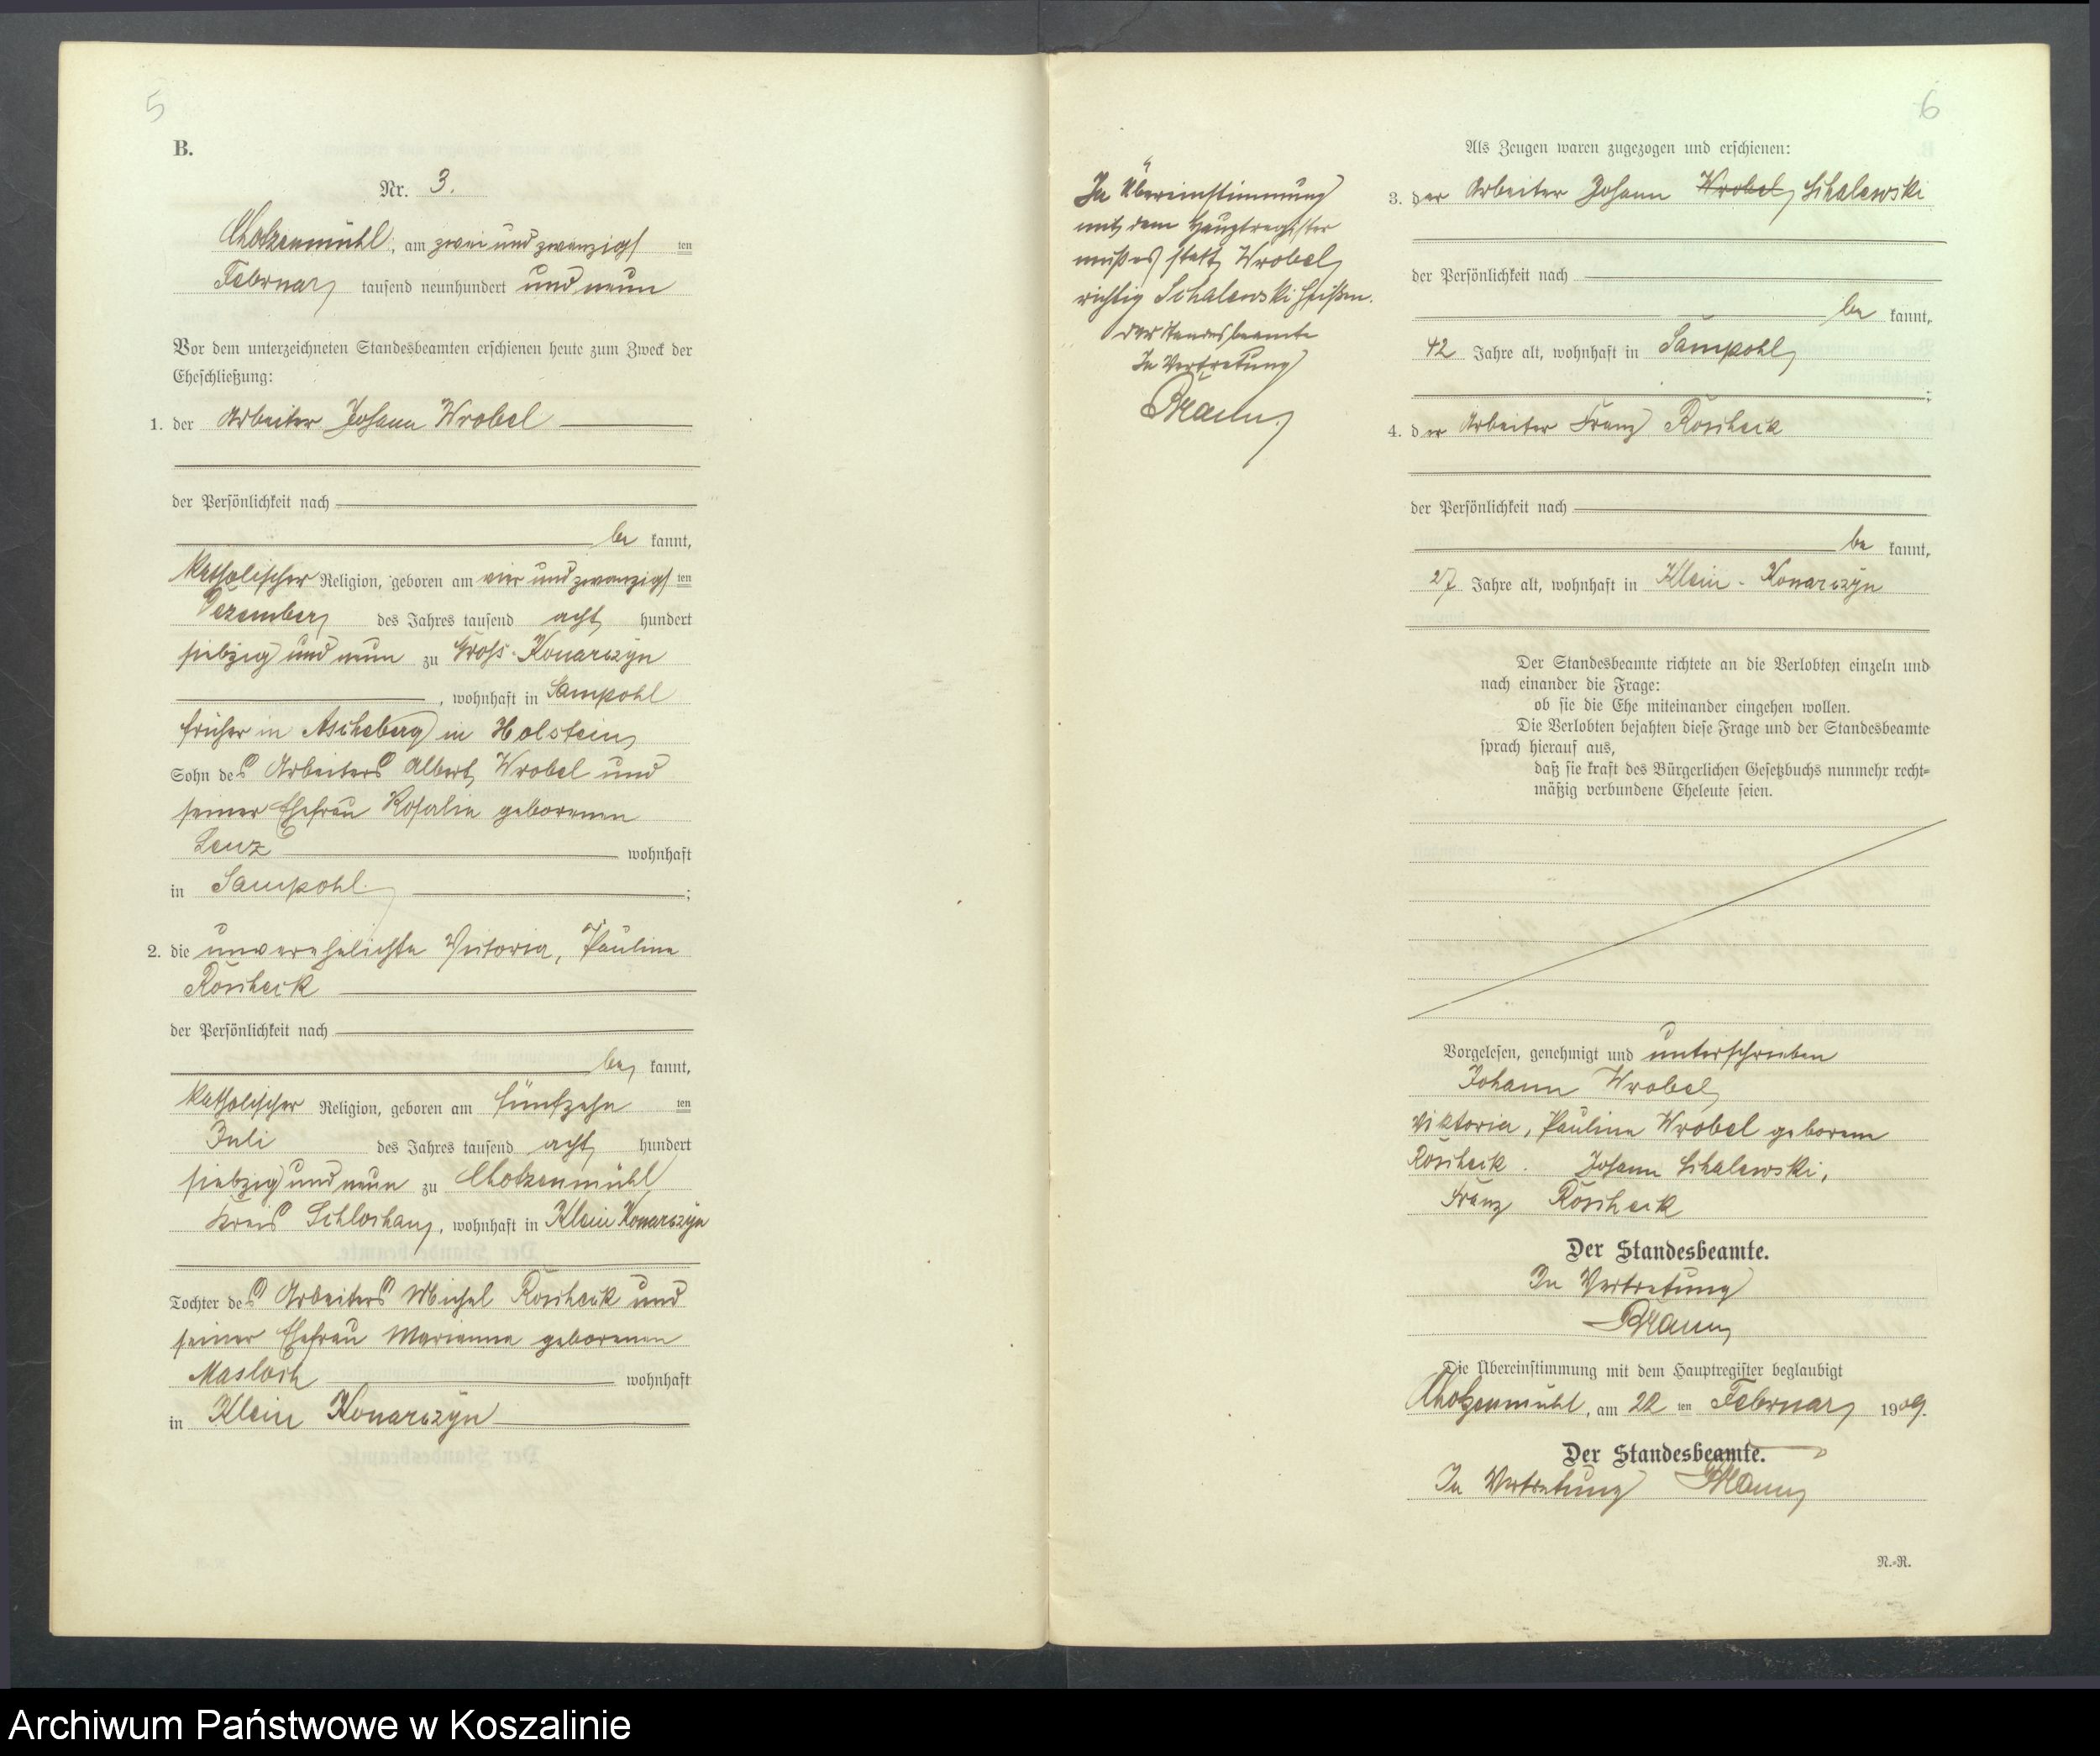 5
B.
Nr. 3.
Chotzenmühl, am zwei und zwanzigsten
Februar tausend neunhundert und neun
Vor dem unterzeichneten Standesbeamten erschienen heute zum Zweck der
Eheschließung:
1. der Arbeiter Johann Wrobel
der Persönlichkeit nach
be kannt,
katholischer Religion, geboren am vier und zwanzigsten
Dezember des Jahres tausend acht hundert
siebzig und neun zu Gross-Konarczyn
, wohnhaft in Sampohl
früher in Ascheberg in Holstein,
Sohn des Arbeiters Albert Wrobel und
seiner Ehefrau Rosalie geborenen
Lenz wohnhaft
in Sampohl ;
2. die unverehelichte Victoria, Pauline
Röscheck
der Persönlichkeit nach
be kannt,
katholischer Religion, geboren am fünfzehn ten
Juli des Jahres tausend acht hundert
siebzig und neun zu Chotzenmühl
Kreis Schlochau, wohnhaft in Klein Konarczyn
Tochter des Arbeiters Michel Röscheck und
seiner Ehefrau Marianna geborenen
wohnhaft
in Klein Konarczyn
6
In Übereinstimmung
mit dem Hauptregister
muß es statt Wrobel
richtig Schalewski heißen.
Der Standesbeamte
In Vertretung
Als Zeugen waren zugezogen und erschienen:
3. der Arbeiter Johann Wrobel Schalewski
der Persönlichkeit nach
be kannt,
42 Jahre alt, wohnhaft in Sampohl
;
4. der Arbeiter Franz Röscheck
der Persönlichkeit nach
be kannt,
27 Jahre alt, wohnhaft in Klein-Konarczyn
Der Standesbeamte richtete an die Verlobten einzeln und
nach einander die Frage:
ob sie die Ehe miteinander eingehen wollen.
Die Verlobten bejahten diese Frage und der Standesbeamte
sprach hierauf aus,
daß sie kraft des Bürgerlichen Gesetzbuchs nunmehr recht=
mäßig verbundene Eheleute seien.
Vorgelesen, genehmigt und unterschrieben
Johann Wrobel
Viktoria, Pauline Wrobel geborene
Röscheck. Johann Schalewski,
Franz Röscheck
Der Standesbeamte.
In Vertretung
Die Übereinstimmung mit dem Hauptregister beglaubigt
Chotzenmühl, am 22 ten Februar 1909.
Der Standesbeamte.
In Vertretung
N.-R.
Archiwum Państwowe w Koszalinie